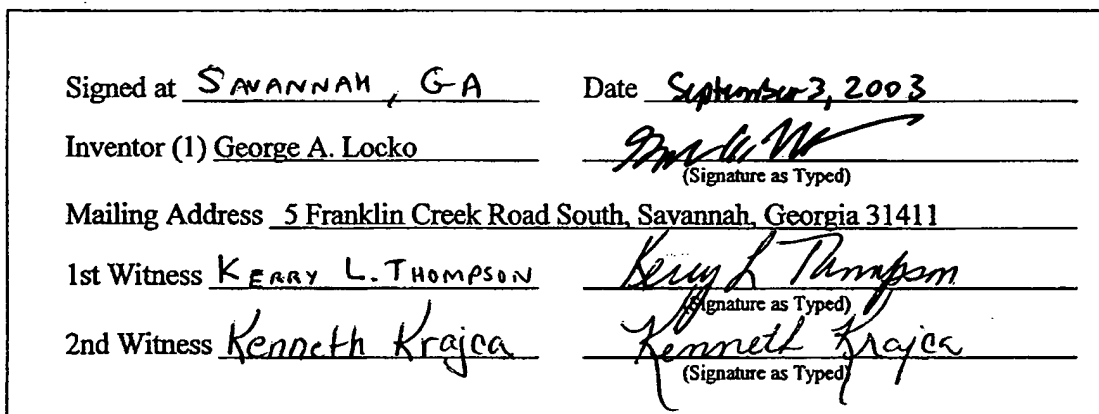 Signed at SAVANNAH, GA Date September 3, 2003
Inventor (1) George A. Locko
(Signature as Typed)
Mailing Address 5 Franklin Creek Road South, Savannah, Georgia 31411
1st Witness KERRY L. THOMPSON Kerry L Thompson
(Signature as Typed)
2nd Witness Kenneth Krajca Kenneth Krajca
(Signature as Typed)